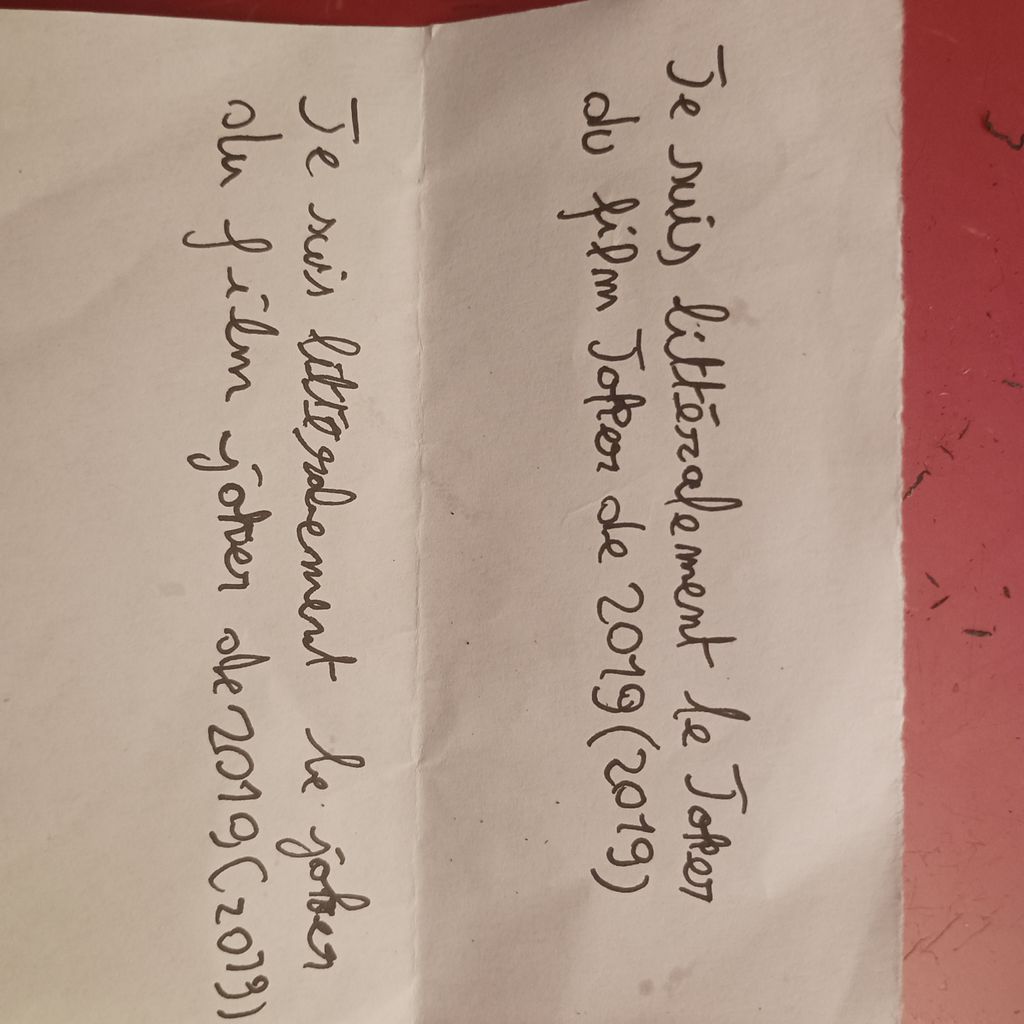 Je suis littéralement le Joker
du film Joker de 2019 (2019)
Je suis littéralement le joker
du film joker de 2019 (2019)